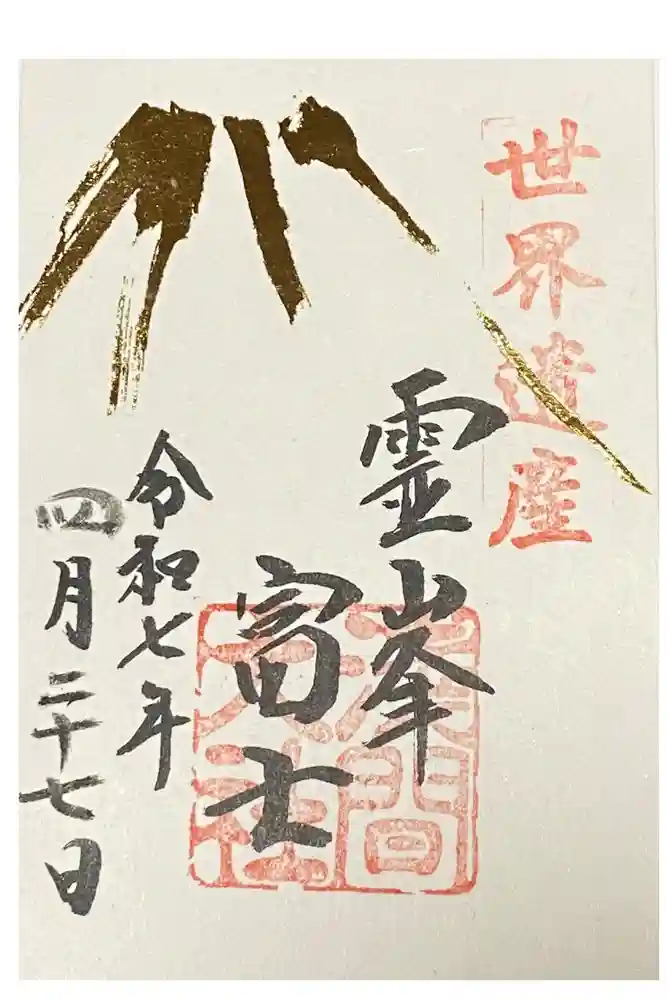 世界遺産
霊峯
富士
淺間大社
令和七年
四月二十七日